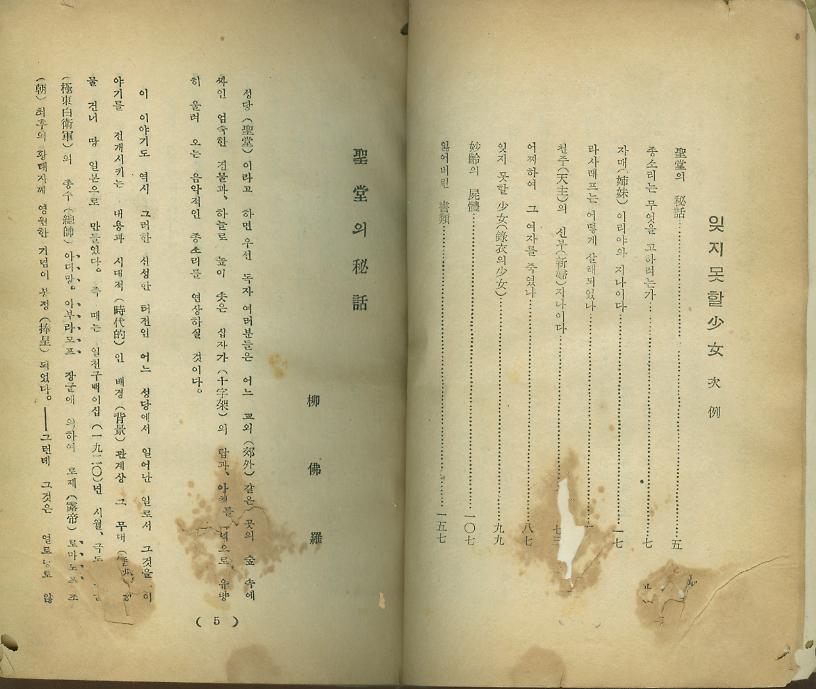 잊지못할 少女 次例
聖堂의 秘話 五
종소리는 무엇을 고하려는가 七
자매(姉妹) 이리야와 지나이다 一七
라사래프는 어떻게 살해되었나
천주(天主)의 신부(新婦) 지나이다 七三
어찌하여 그 여자를 죽였나 八七
잊지 못할 少女(綠衣의 少女) 九九
妙齡의 屍體 一〇七
잃어버린 書類 一五七
聖堂의 秘話
柳佛羅
성당(聖堂)이라고 하면 우선 독자 여러분들은 어느 교외(郊外) 같은 곳의 숲 속에
싸인 엄숙한 건물과, 하늘로 높이 솟은 십자가(十字架)의 탑과, 유량
히 울려 오는 음악적인 종소리를 연상하실 것이다.
이 이야기도 역시 그러한 신성한 터전인 어느 성당에서 일어난 일로서 그것을 이
야기를 전개시키는 내용과 시대적(時代的)인 배경(背景) 관계상 그 무대
물 건너 땅 일본으로 만들었다. 즉 때는 일천구백이십(一九二〇)년 시월, 극도
(極東白衛軍)의 총수(總帥) 아더망. 아부라모프 장군에 의하여 로제(露帝) 로마노프 조
(朝) 최후의 황태자께 영원한 기념이 봉정(捧呈)되었다. ──그런데 그것은 얼토당토 않
( 5 )